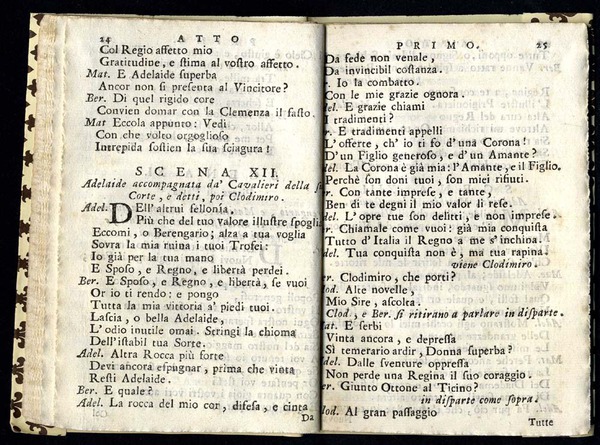 24 ATTO
Col Regio affetto mio
Gratitudine, e stima al vostro affetto.
Mat. E Adelaide superba
Ancor non si presenta al Vincitore?
Ber. Di quel rigido core
Convien domar con la Clemenza il fasto.
Mat Eccola appunto: Vedi
Con che volto orgoglioso
Intrepida sostien la sua sciagura!
SCENA XII.
Adelaide accompagnata da' Cavalieri della
Corte, e detti, poi Clodimiro.
Adel. DEll'altrui fellonia,
Più che del tuo valore illustre spoglia
Eccomi, o Berengario; alza a tua voglia
Sovra la mia ruina i tuoi Trofei:
Io già per la tua mano
E Sposo, e Regno, e libertà perdei.
Ber. E Sposo, e Regno, e libertà, se vuoi
Or io ti rendo; e pongo
Tutta la mia vittoria a' piedi tuoi.
Lascia, o bella Adelaide,
L'odio inutile omai. Stringi la chioma
Dell'istabil tua Sorte.
Adel. Altra Rocca più forte
Devi ancora espugnar, prima che vinta
Resti Adelaide.
Ber. E quale?
Adel. La rocca del mio cor, difesa, e cinta
Da
PRIMO. 25
Da fede non venale,
Da invincibil costanza.
r. Io la combatto.
Con le mie grazie ognora.
del. E grazie chiami
I tradimenti?
r. E tradimenti appelli
L'offerte, ch'io ti fo d'una Corona!
D'un Figlio generoso, e d'un Amante?
del. La Corona è già mia: l'Amante, e il Figlio.
Perchè son doni tuoi, son miei rifiuti.
er. Con tante imprese, e tante,
Ben di te degni il mio valor li rese.
del. L'opre tue son delitti, e non imprese.
er. Chiamale come vuoi: già mia conquista
Tutto d'Italia il Regno a me s'inchina.
del. Tua conquista non è, ma tua rapina.
viene Clodimiro.
er. Clodimiro, che porti?
lod. Alte novelle,
Mio Sire, ascolta.
Clod, e Ber. si ritirano a parlare in disparte.
at. E serbi
Vinta ancora, e depressa
Sì temerario ardir, Donna superba?
del. Dalle sventure oppressa
Non perde una Regina il suo coraggio.
er. Giunto Ottone al Ticino?
in disparte come sopra.
lod. Al gran passaggio
Tutte